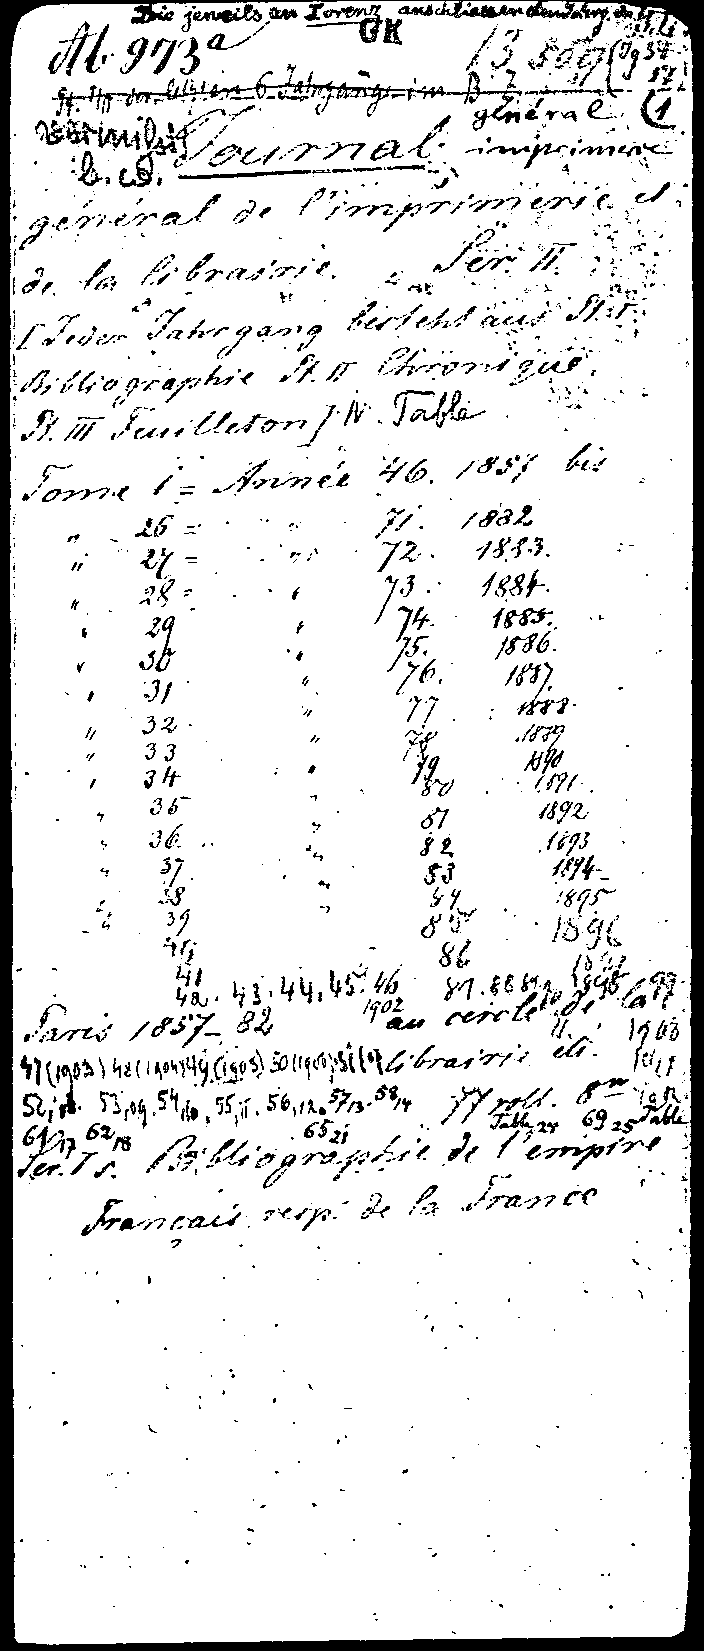 Die jeweils an Lorenz anschliessenden Jahrg. der
Ab 973a
UK
13 509
St. I/II der letzten 6 Jahrgänge im B
général (1
vermißt
imprimerie
b. cd.
Journal
général de l'imprimerie et
de la librairie. Ser. II.
[Jeder Jahrgang besteht aus St. I.
Bibliographie St. II Chronique.
St. III Feuilleton] IV. Table
Tome 1 = Année 46. 1857 bis
" 26 = " 71. 1882
" 27 = " 72. 1883.
" 28 = " 73. 1884.
" 29 " 74. 1885.
" 30 " 75. 1886.
" 31 " 76. 1887
" 32 " 77 1888.
" 33 " 78 1889
" 34 " 79 1890
80 1891
" 35 " 81 1892
" 36 " 82 1893
" 37 " 83 1894
" 38 " 84 1895
" 39 " 85 1896
40 86
41
42. 43. 44. 45. 46 1898 99
Paris 1857-82 1902 au cercle de la
47 (1903) 48 (1904) 49 (1905) 50 (1906) 51 (07 librairie etc. 1903
52, 53,09. 54,10, 55,11. 56,12. 57,13. 58,14 77 voll. 8°
61,17 62,18 65,21 Table 24 69 25 Table
Ser. I s. Bibliographie de l'empire
Français resp. de la France